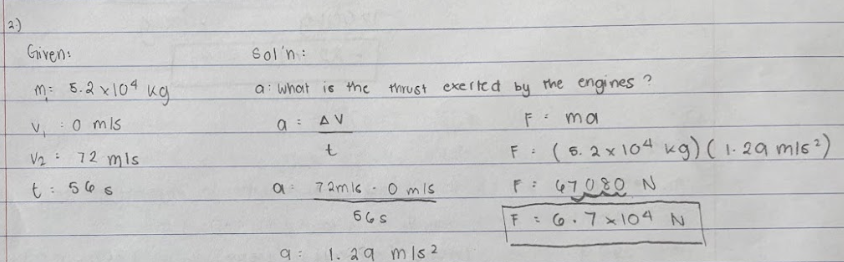 2.)
Given:
m: 5.2 x 10⁴ kg
V₁ : 0 m/s
V₂ : 72 m/s
t : 56 s
Sol'n:
a: What is the thrust exerted by the engines?
a = ΔV
t
a: 72 m/s - 0 m/s
56 s
a: 1.29 m/s²
F = ma
F = (5.2 x 10⁴ kg)(1.29 m/s²)
F : 67080 N
F = 6.7 x 10⁴ N